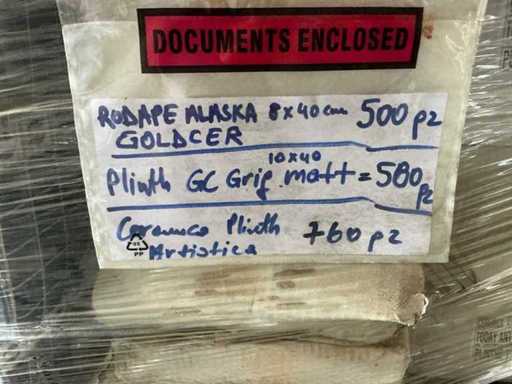 DOCUMENTS ENCLOSED
RODAPE ALASKA 8x40cm 500pz
GOLDCER
10x40
Plinth GC Grig.matt=500
pz
Ceramica Plinth 760pz
Artistica
PP
TODAY ANT